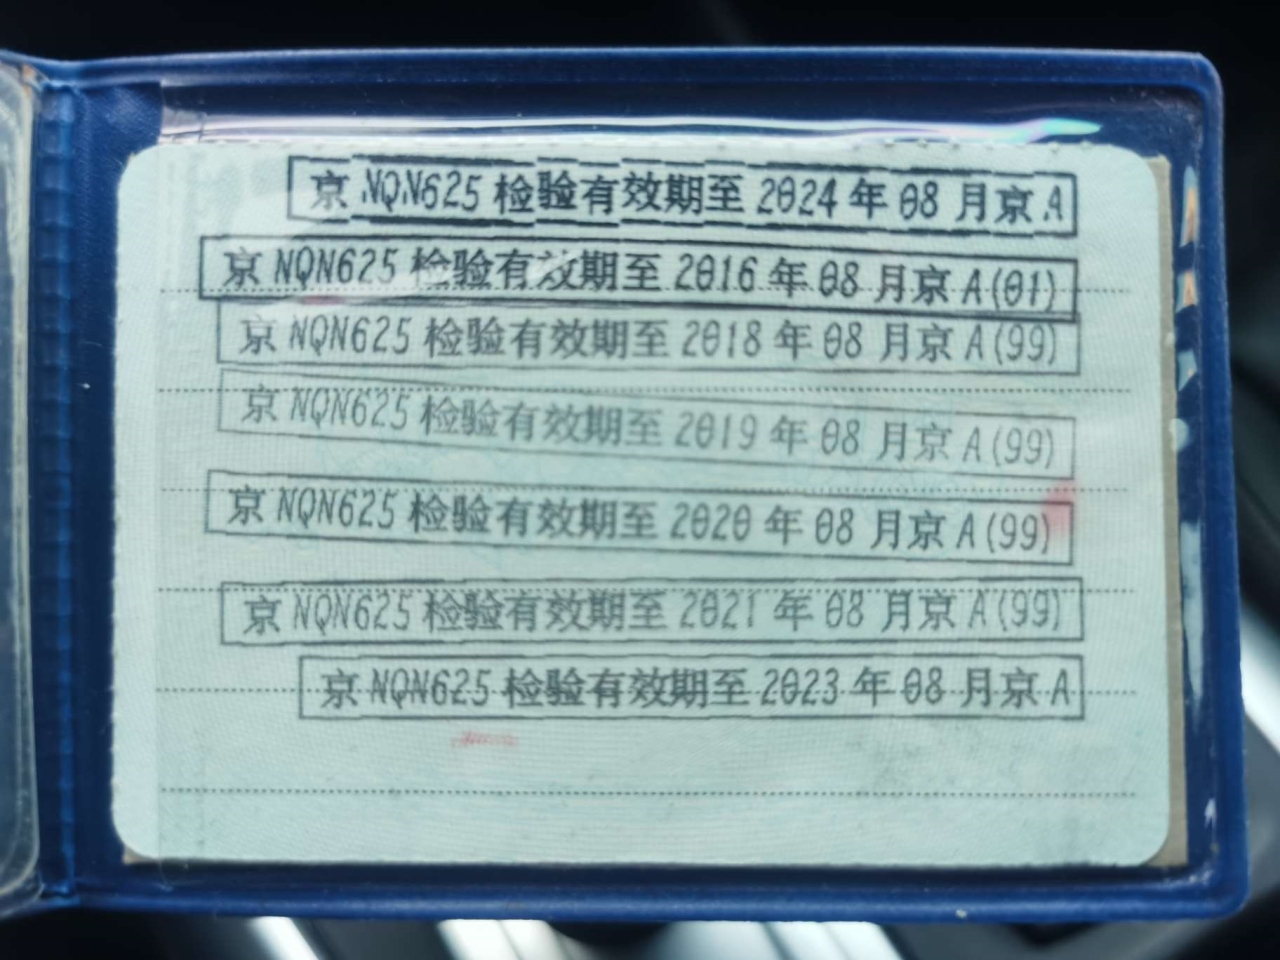 京 NQN625 检验有效期至 2024 年 08 月京 A
京 NQN625 检验有效期至 2016 年 08 月京 A(01)
京 NQN625 检验有效期至 2018 年 08 月京 A(99)
京 NQN625 检验有效期至 2019 年 08 月京 A(99)
京 NQN625 检验有效期至 2020 年 08 月京 A(99)
京 NQN625 检验有效期至 2021 年 08 月京 A(99)
京 NQN625 检验有效期至 2023 年 08 月京 A